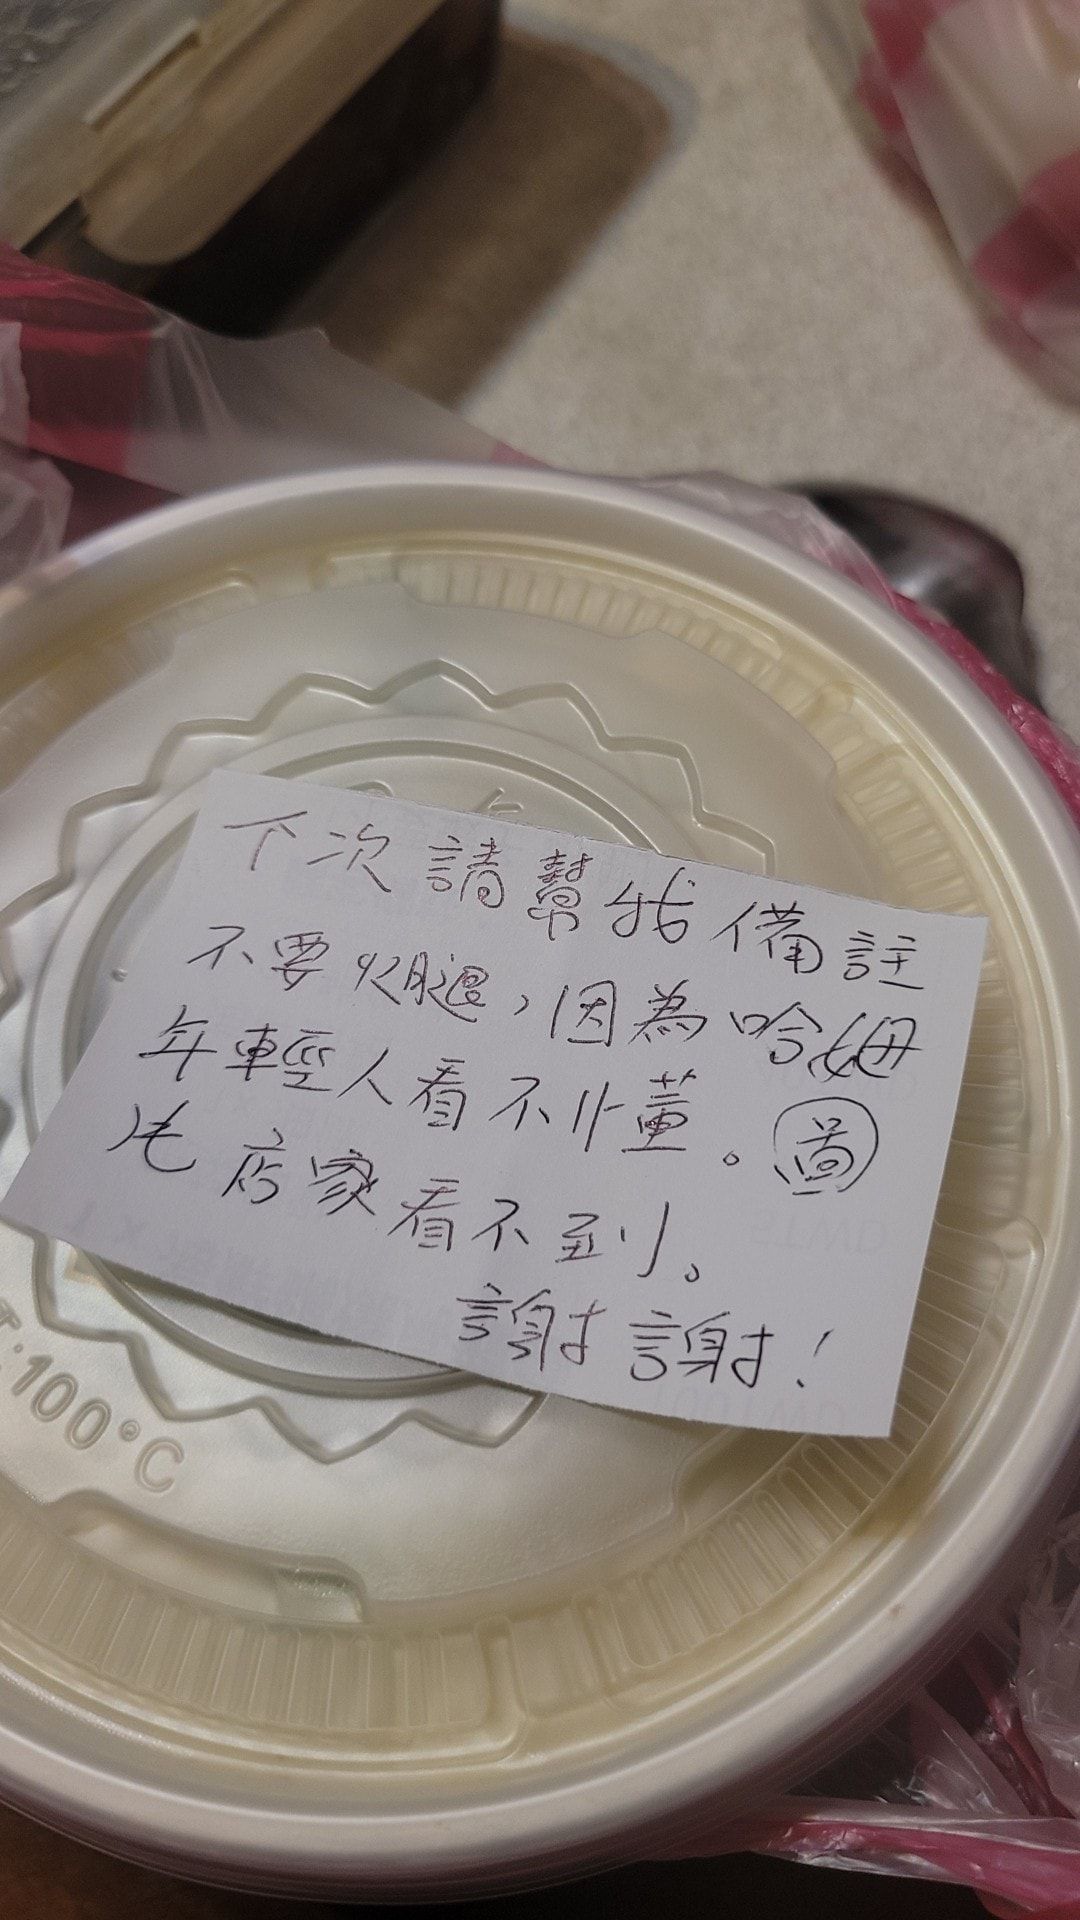 下次請幫我備註
不要火腿，因為哈姆
年輕人看不懂。圖
片店家看不到。
謝謝！
T:100°C